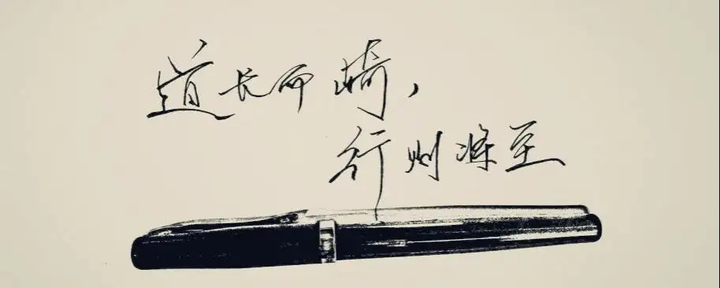 道长而崎，
行则将至